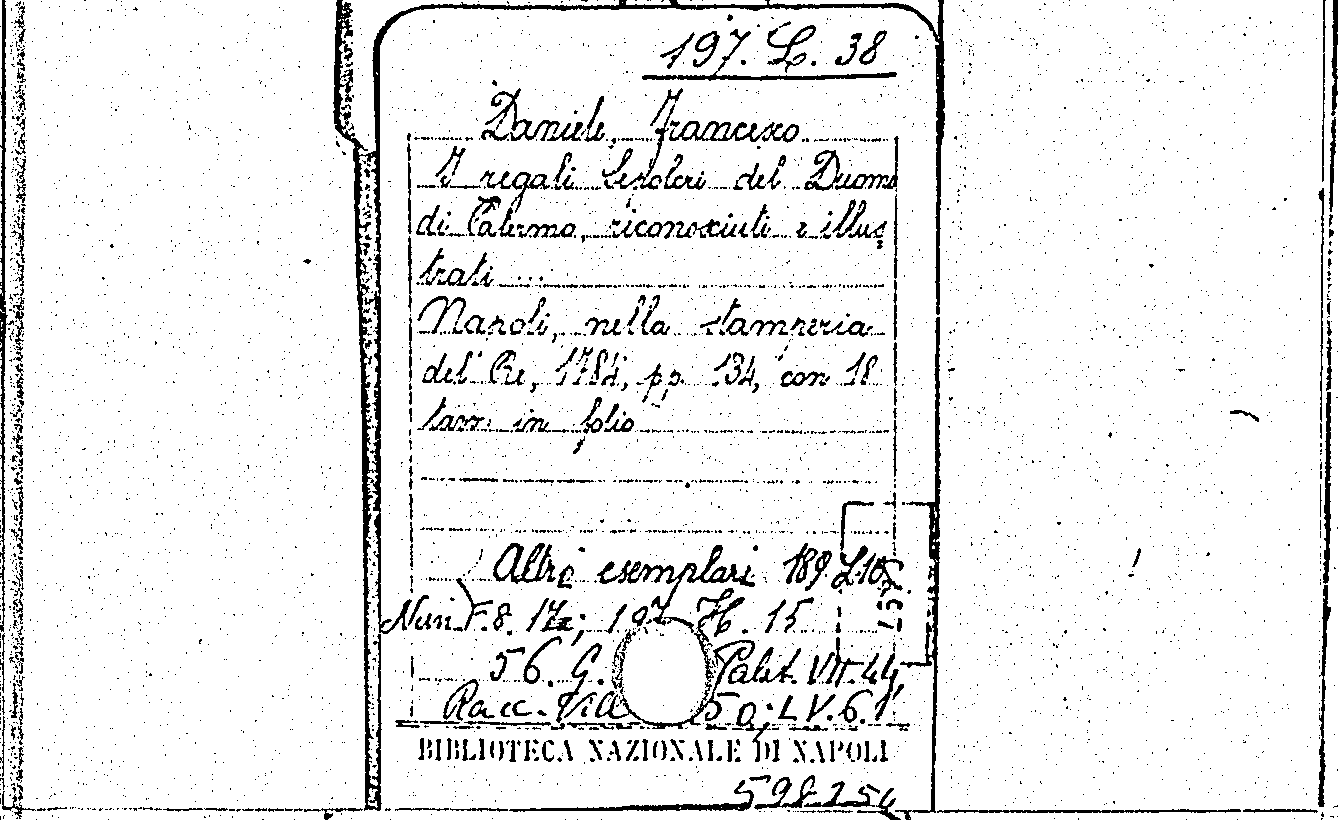 197. L. 38
Daniele, Francesco
I regali Sepolcri del Duomo
di Palermo, riconosciuti e illus
trati ...
Napoli, nella stamperia
del Re, 1784, pp. 134, con 18
tavv. in folio
Altri esemplari 189 L.10
Nun. F.8. 17; 197 H. 15
56. G. Palat. VII. 44,
Racc. Vill 50; LV.6.
BIBLIOTECA NAZIONALE DI NAPOLI
598254